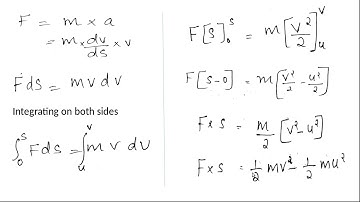 F = m × a
= m × dv/ds × v
F ds = m v dv
Integrating on both sides
∫₀ˢ F ds = ∫ᵤᵛ m v dv
F[s]₀ˢ = m[v²/2]ᵤᵛ
F[s-0] = m[v²/2 - u²/2]
F×s = m/2 [v²-u²]
F×s = 1/2 mv² - 1/2 mu²